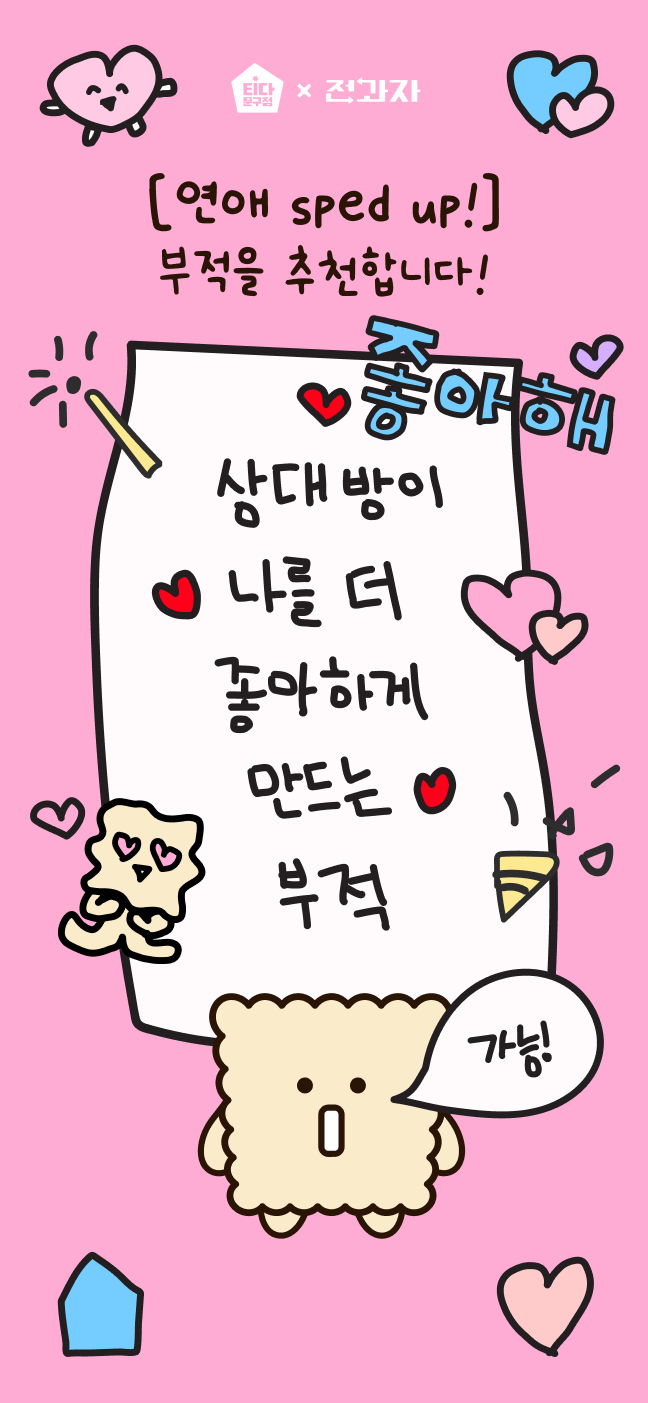 티다
문구점 × 전과자
[연애 sped up!]
부적을 추천합니다!
좋아해
상대방이
나를 더
좋아하게
만드는
부적
가능!